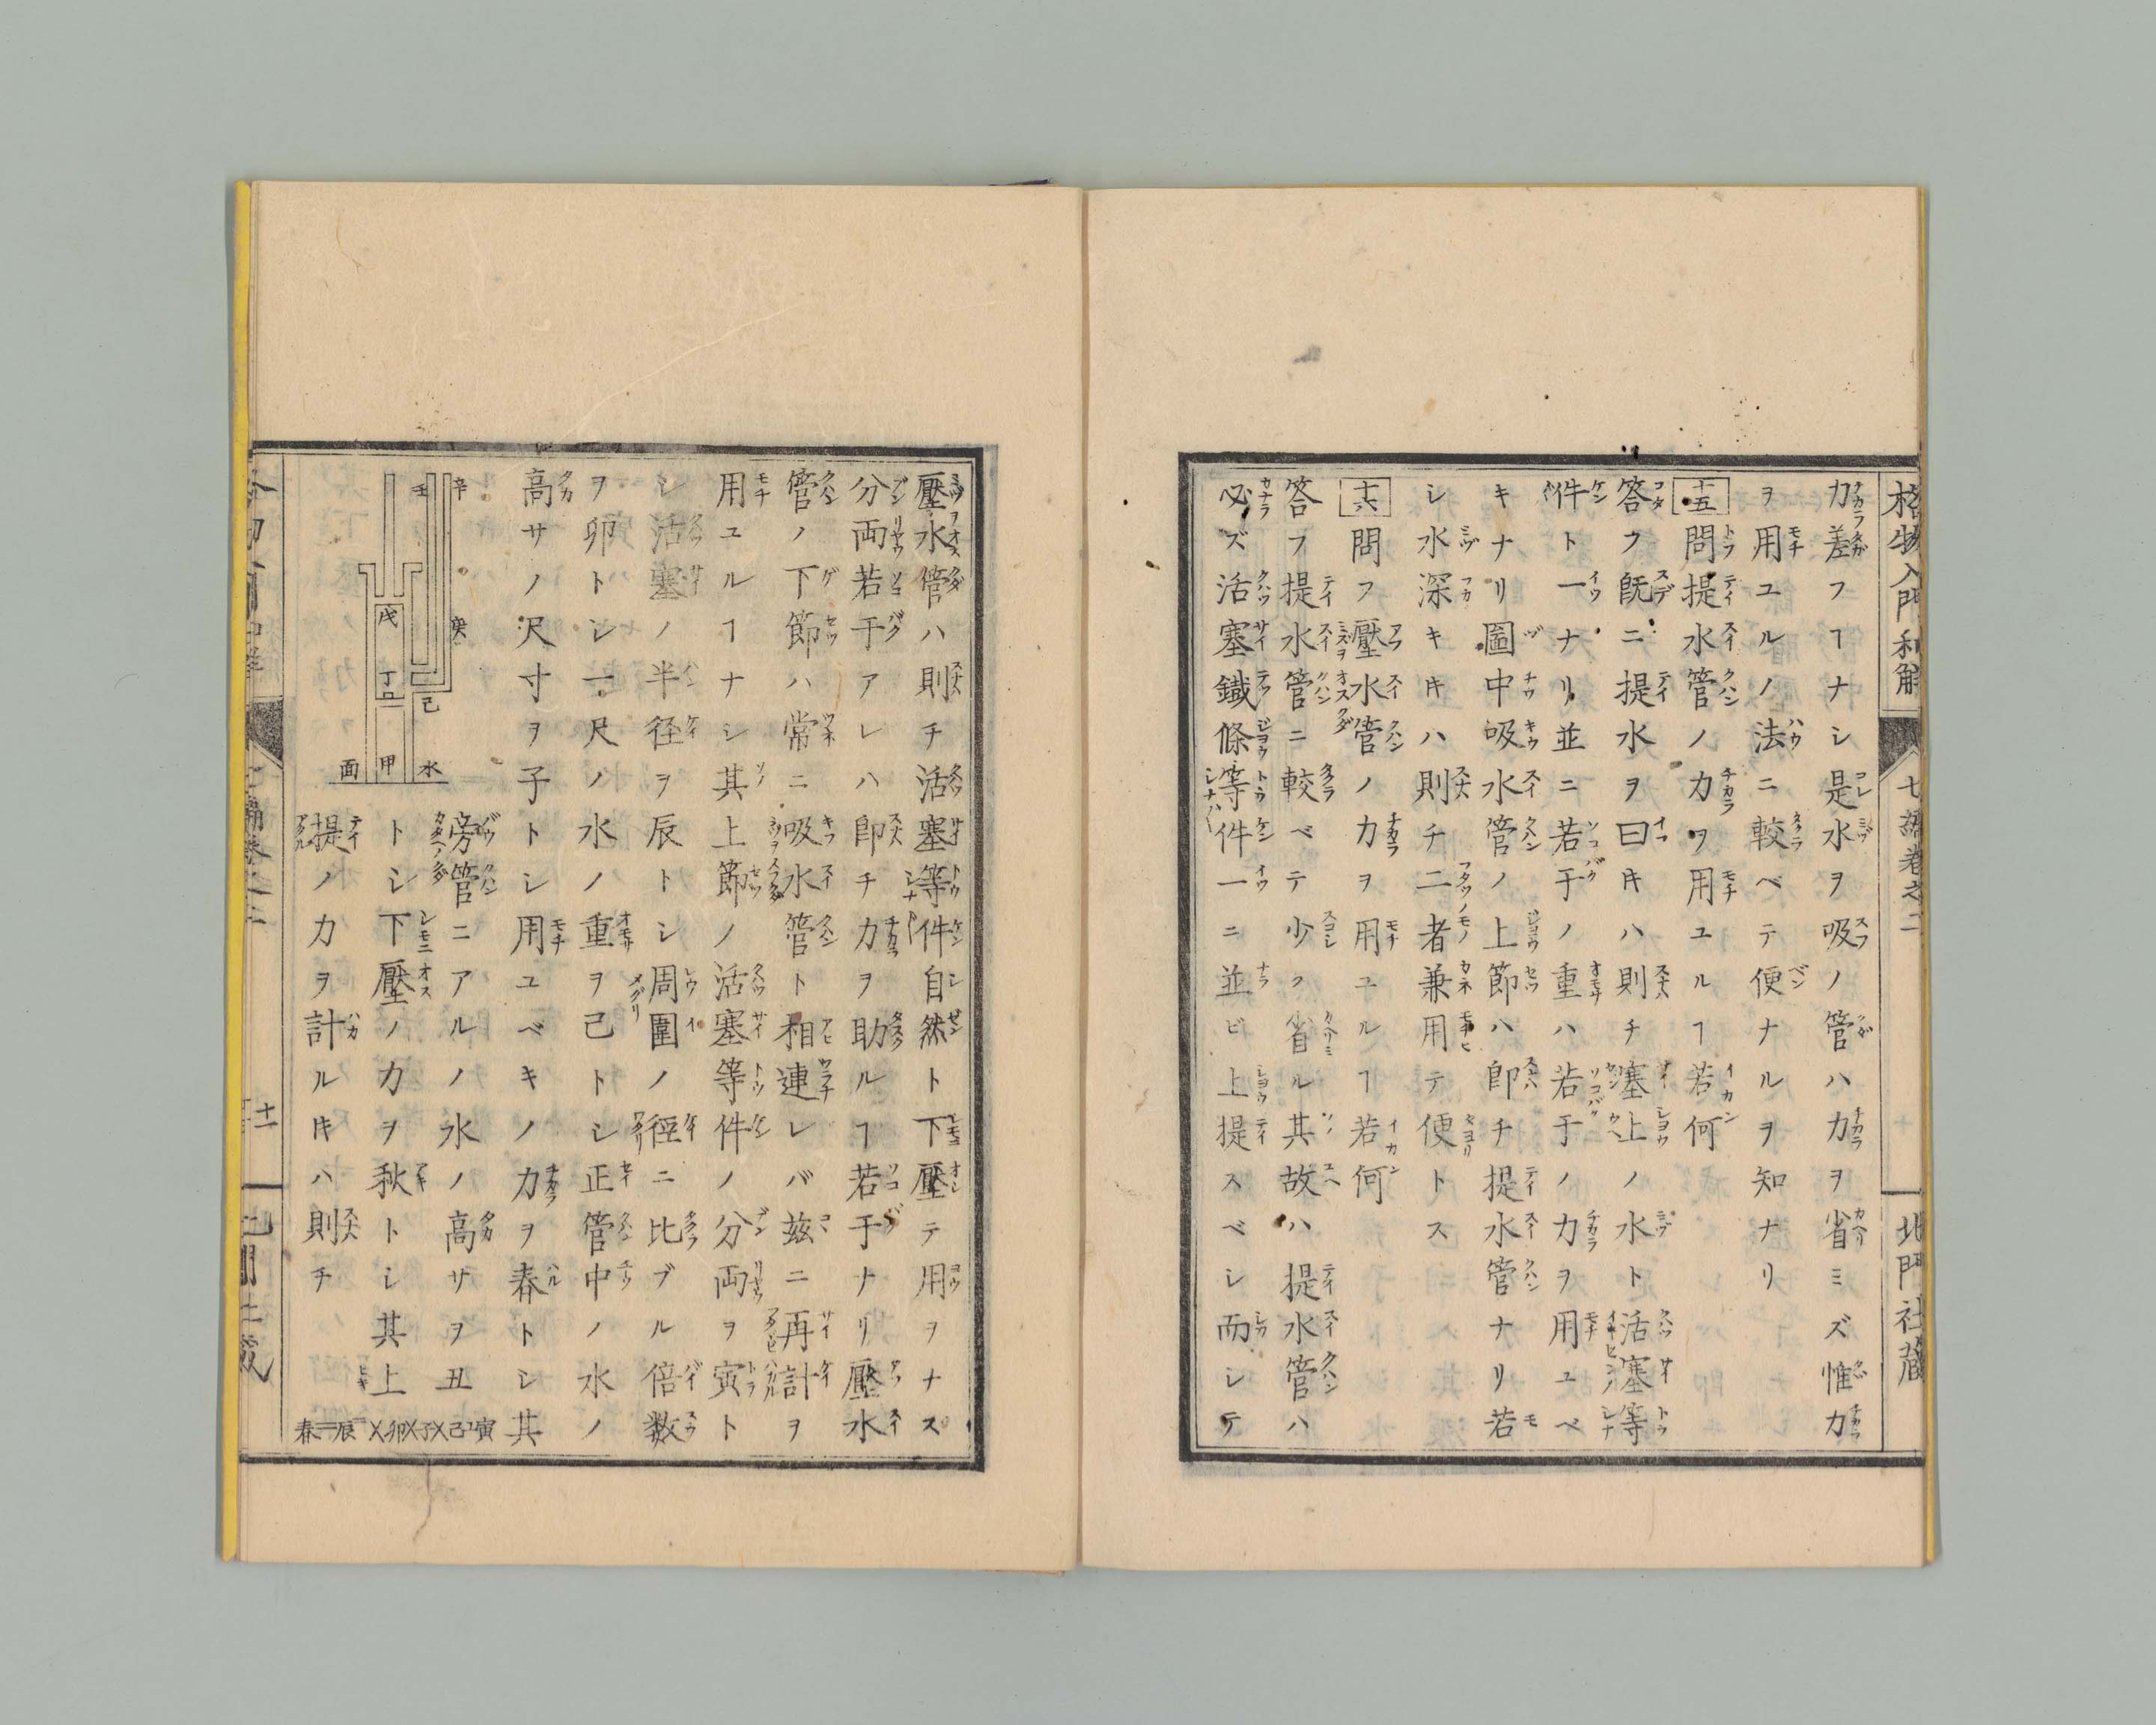 格物入門和解
七編卷之二
北門社蔵
力差フヿナシ是水ヲ吸ノ管ハ力ヲ省ミズ惟力
ヲ用ユルノ法ニ較ベテ便ナルヲ知ナリ
十五 問提水管ノ力ヲ用ユルヿ若何
答フ旣ニ提水ヲ曰キハ則チ塞上ノ水ト活塞等
件ト一ナリ並ニ若于ノ重ハ若于ノ力ヲ用ユベ
キナリ圖中吸水管ノ上節ハ卽チ提水管ナリ若
シ水深キキハ則チ二者兼用テ便トス
十六 問フ壓水管ノ力ヲ用ユルヿ若何
答フ提水管ニ較ベテ少ク省ル其故ハ提水管ハ
必ズ活塞鐵條等件一ニ並ビ上提スベシ而シテ
壓水管ハ則チ活塞等件自然ト下壓テ用ヲナス
分両若于アレハ卽チ力ヲ助ルヿ若于ナリ壓水
管ノ下節ハ常ニ吸水管ト相連レバ茲ニ再計ヲ
用ユルヿナシ其上節ノ活塞等件ノ分両ヲ寅ト
シ活塞ノ半径ヲ辰トシ周圍ノ徑ニ比ブル倍数
ヲ卯トシ一尺ノ水ノ重ヲ己トシ正管中ノ水ノ
高サノ尺寸ヲ子トシ用ユベキノ力ヲ春トシ其
辛
壬
癸
戊
己
丁
丑
水
甲
面
旁管ニアルノ水ノ高サヲ丑
トシ下壓ノ力ヲ秋トシ其上
提ノ力ヲ計ルキハ則チ
春＝辰＝X卯X子X己⊥寅
十一